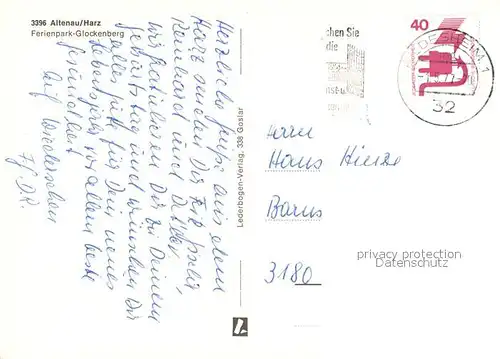 3396 Altenau/Harz
Ferienpark-Glockenberg
Herzliche Grüße aus dem
Harz senden Dir
Reinhard und
Wir gratulieren Dir zu Deinem
Geburtstag und wünschen Dir
alles gute für Dein neues
Lebensjahr vor allem beste
Gesundheit
Auf Wiedersehen
Lederbogen-Verlag, 338 Goslar
chen Sie
die
40
32
Herrn
Hans Hinze
3180
privacy protection
Datenschutz